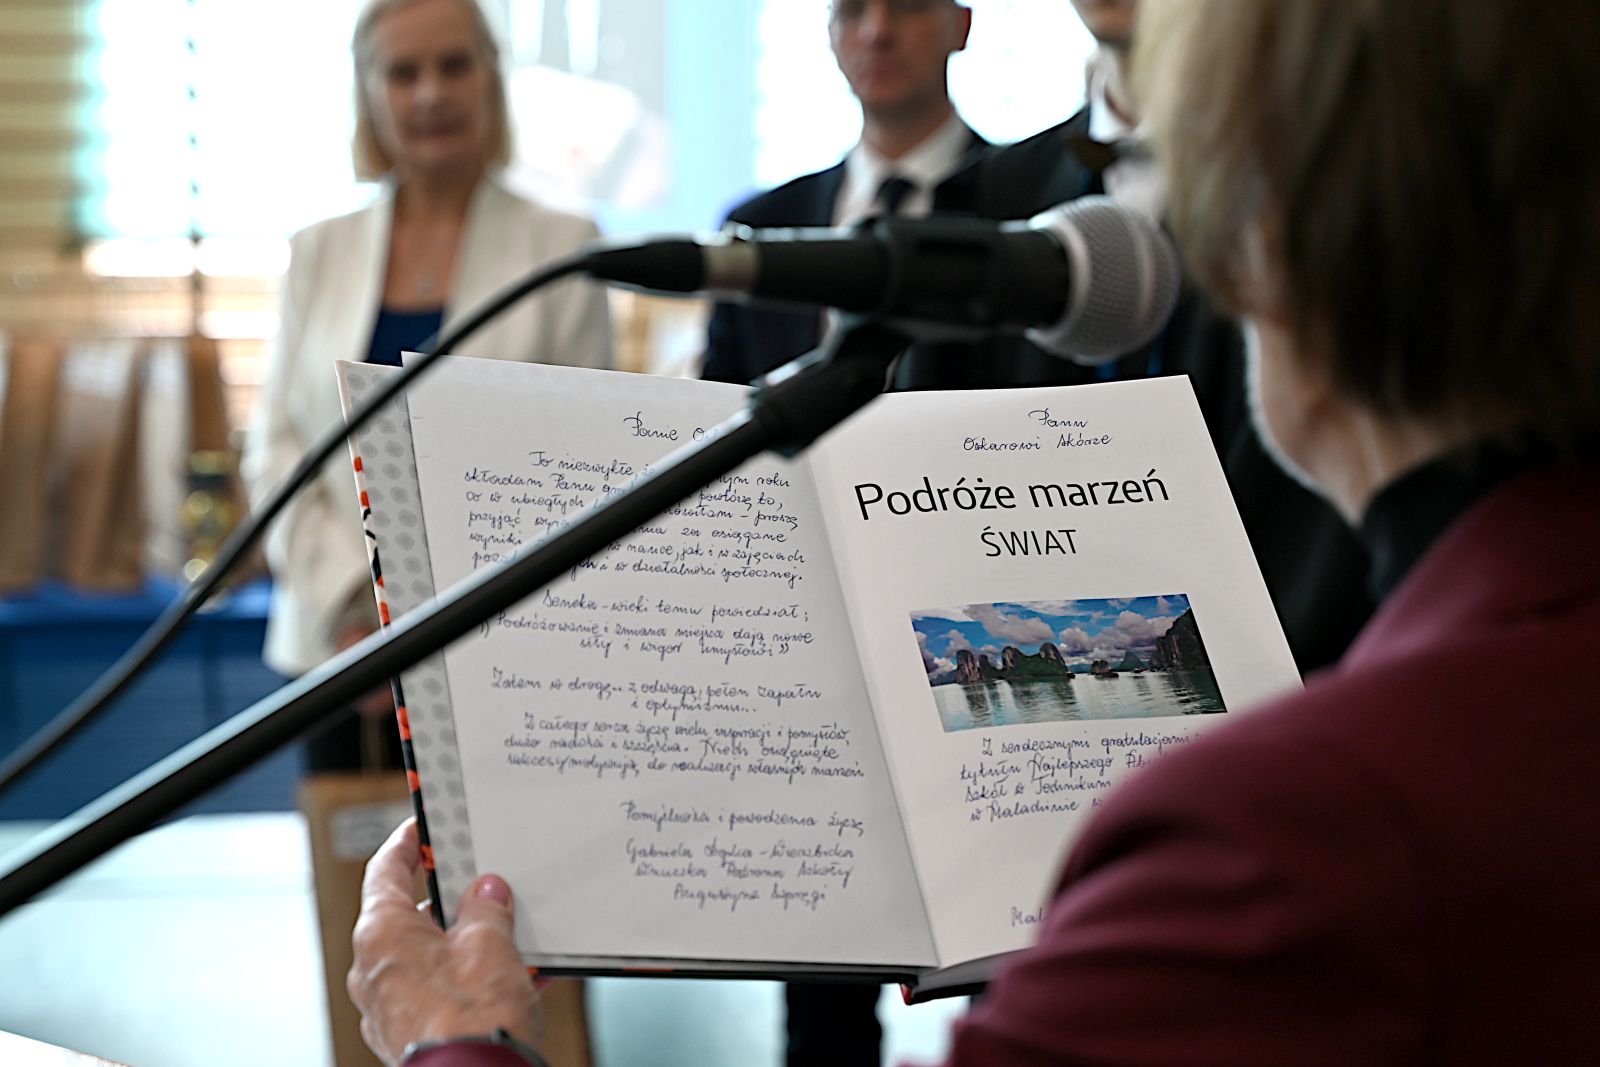 Panie
To niezwykłe, że nym roku
składam Panu powtórzę to,
co w ubiegłych - proszę
przyjąć za osiągane
wyniki w nauce, jak i w zajęciach
i w działalności społecznej.
Seneka - wieki temu powiedział:
"Podróżowanie i zmiana miejsca dają nowe
siły i wigor umysłowi"
Zatem w drogę... z odwagą, pełen zapału
i optymizmu...
Z całego serca życzę wielu inspiracji i pomysłów,
dużo radości i szczęścia. Niech osiągnięte
sukcesy motywują do realizacji własnych marzeń
Pomyślności i powodzenia życzę
Gabriela
Wnuczka Patrona Szkoły
Augustyna Szpręgi
Panu
Oskarowi Skórze
Podróże marzeń
ŚWIAT
Z serdecznymi gratulacjami
tytułu Najlepszego
Szkół w Technikum
w Maladinie w